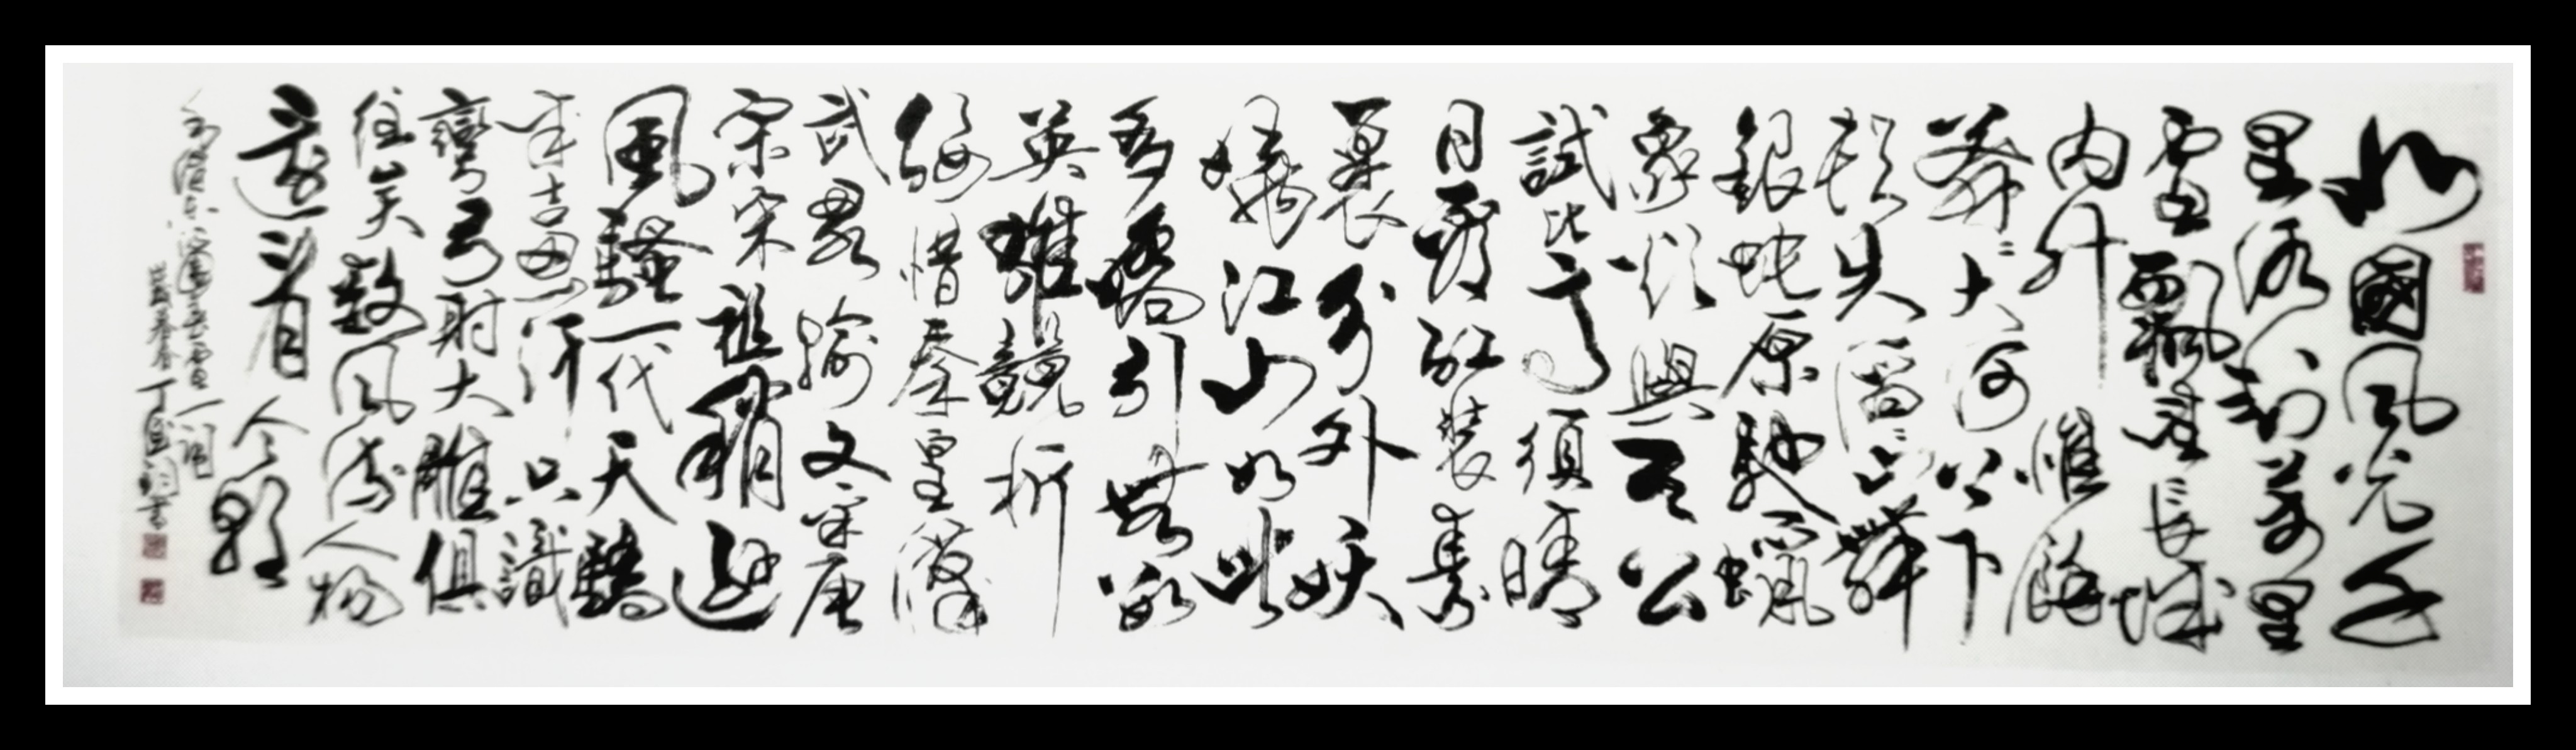 北國風光千
里冰封萬里
雪飄望長城
内外惟餘
莽〻大河上下
頓失滔〻山舞
銀蛇原馳蠟
象欲與天公
試比高須晴
日看紅裝素
裹分外妖
嬈江山如此
多嬌引無數
英雄競折
腰惜秦皇漢
武略輸文采唐
宗宋祖稍遜
風騷一代天驕
成吉思汗只識
彎弓射大雕俱
往矣數風流人物
還看今朝
毛澤東沁園春雪一詞
丁書